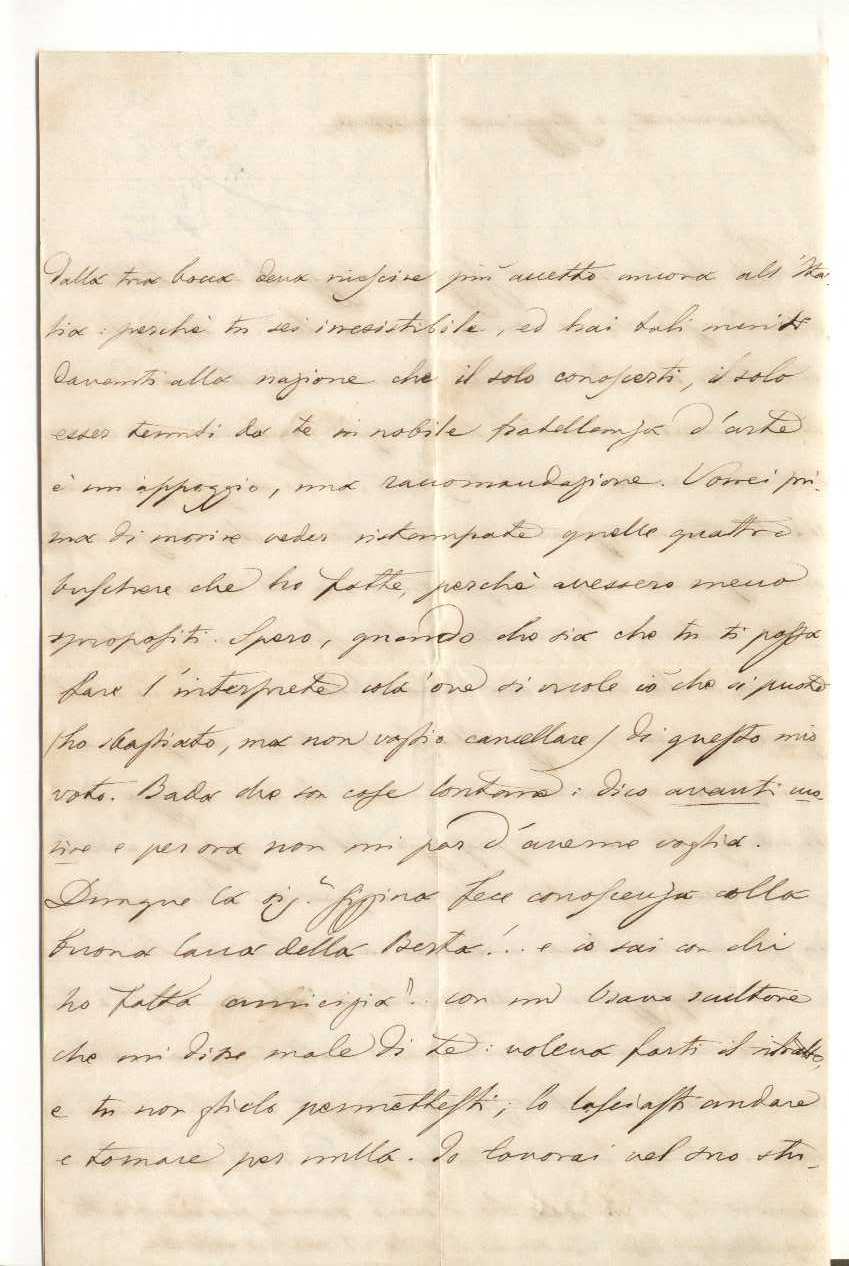 dalla tua bocca deva riescire più accetto ancora all'Ita-
lia: perchè tu sei irresistibile, ed hai tali meriti
davanti alla nazione che il solo conoscerti, il solo
esser tenuti da te in nobile fratellanza d'arte
è un appoggio, una raccomandazione. Vorrei pri-
ma di morire veder ristampate quelle quattro
buschere che ho fatte, perchè avessero meno
spropositi. Spero, quando che sia che tu ti possa
fare l'interprete colà 'ove si vuole ciò che si puote
(ho sbagliato, ma non voglio cancellare) di questo mio
voto. Bada che son cose lontane: dico avanti mo-
rire e per ora non mi par d'averne voglia.
Dunque la sig.ª Giggina fece conoscenza colla
buona lana della Berta!.. e io sai con chi
ho fatta amicizia?.. con un bravo scultore
che mi disse male di te: voleva farti il ritratto,
e tu non glielo permettesti; lo lasciasti andare
e tornare per nulla. Io lavorai nel suo stu-